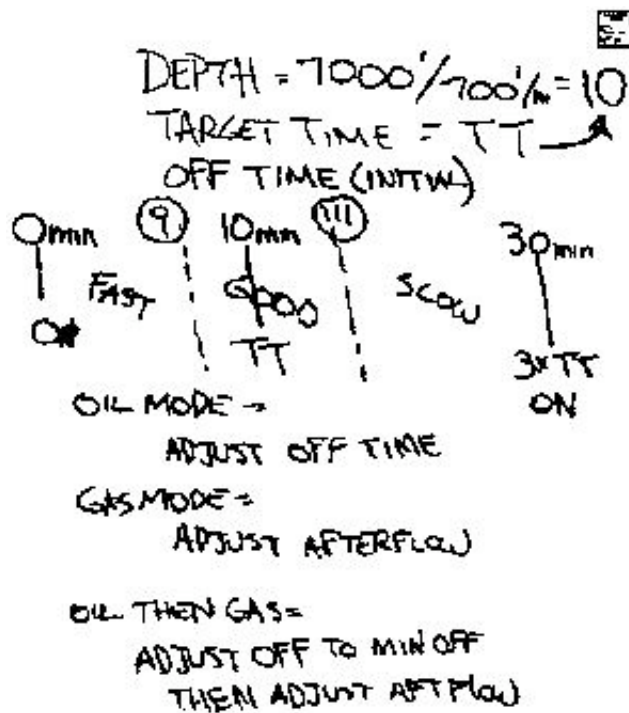 DEPTH = 7000'/700'/m = 10
TARGET TIME = TT
OFF TIME (INITIAL)
0 min 9 10 min 11 30 min
FAST GOOD SLOW
ON TT 3xTT
ON
OIL MODE =
ADJUST OFF TIME
GAS MODE =
ADJUST AFTERFLOW
OIL THEN GAS =
ADJUST OFF TO MIN OFF
THEN ADJUST AFTFLOW